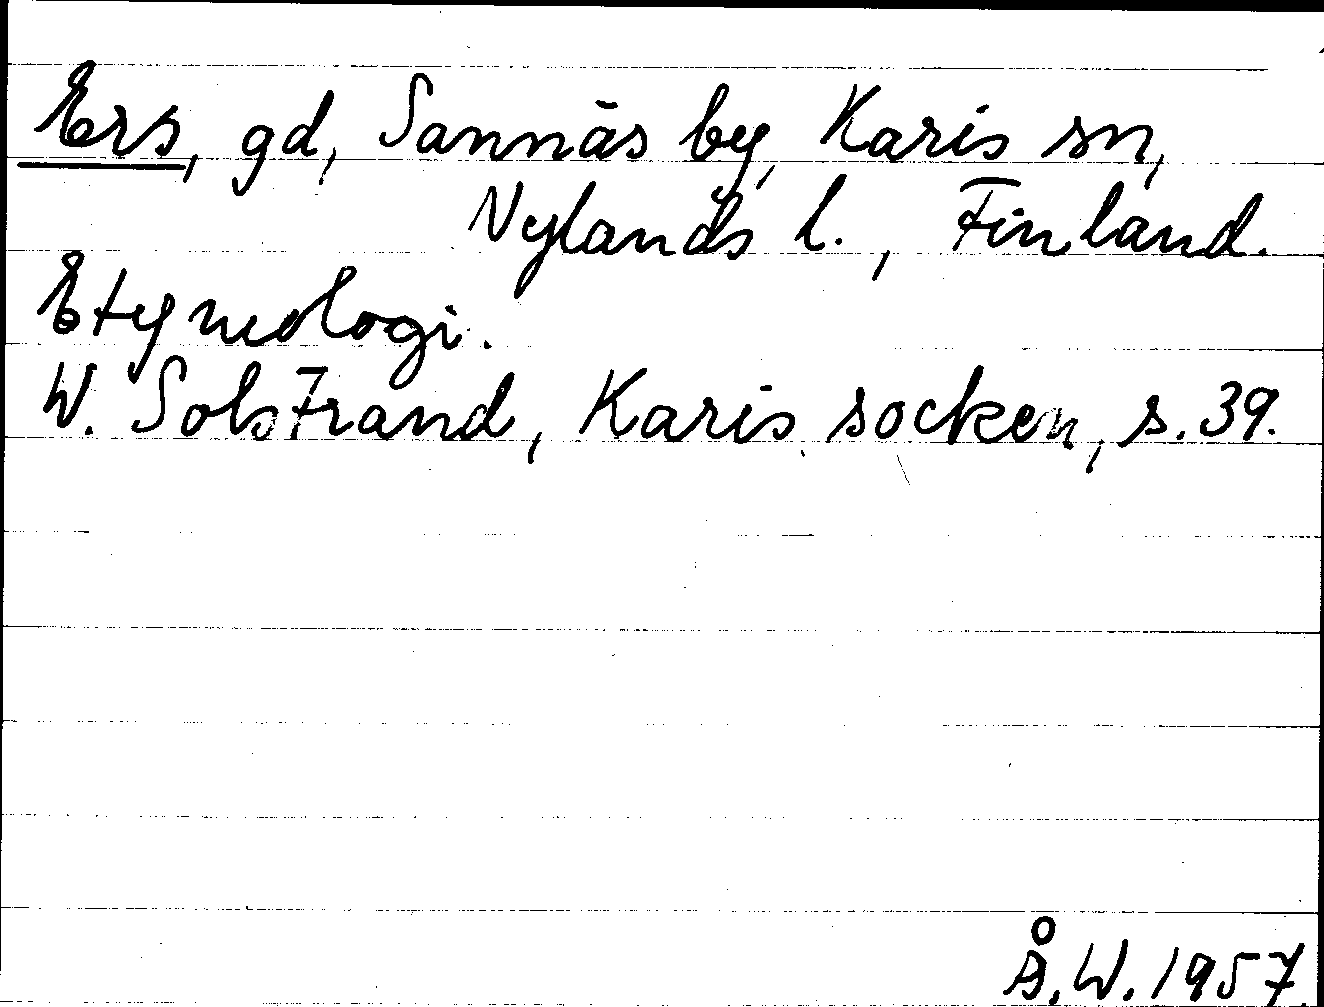 Ers, gd, Sannäs by, Karis sn,
Nylands l., Finland.
Etymologi.
W. Solstrand, Karis socken, s. 39.
Å.W. 1957.